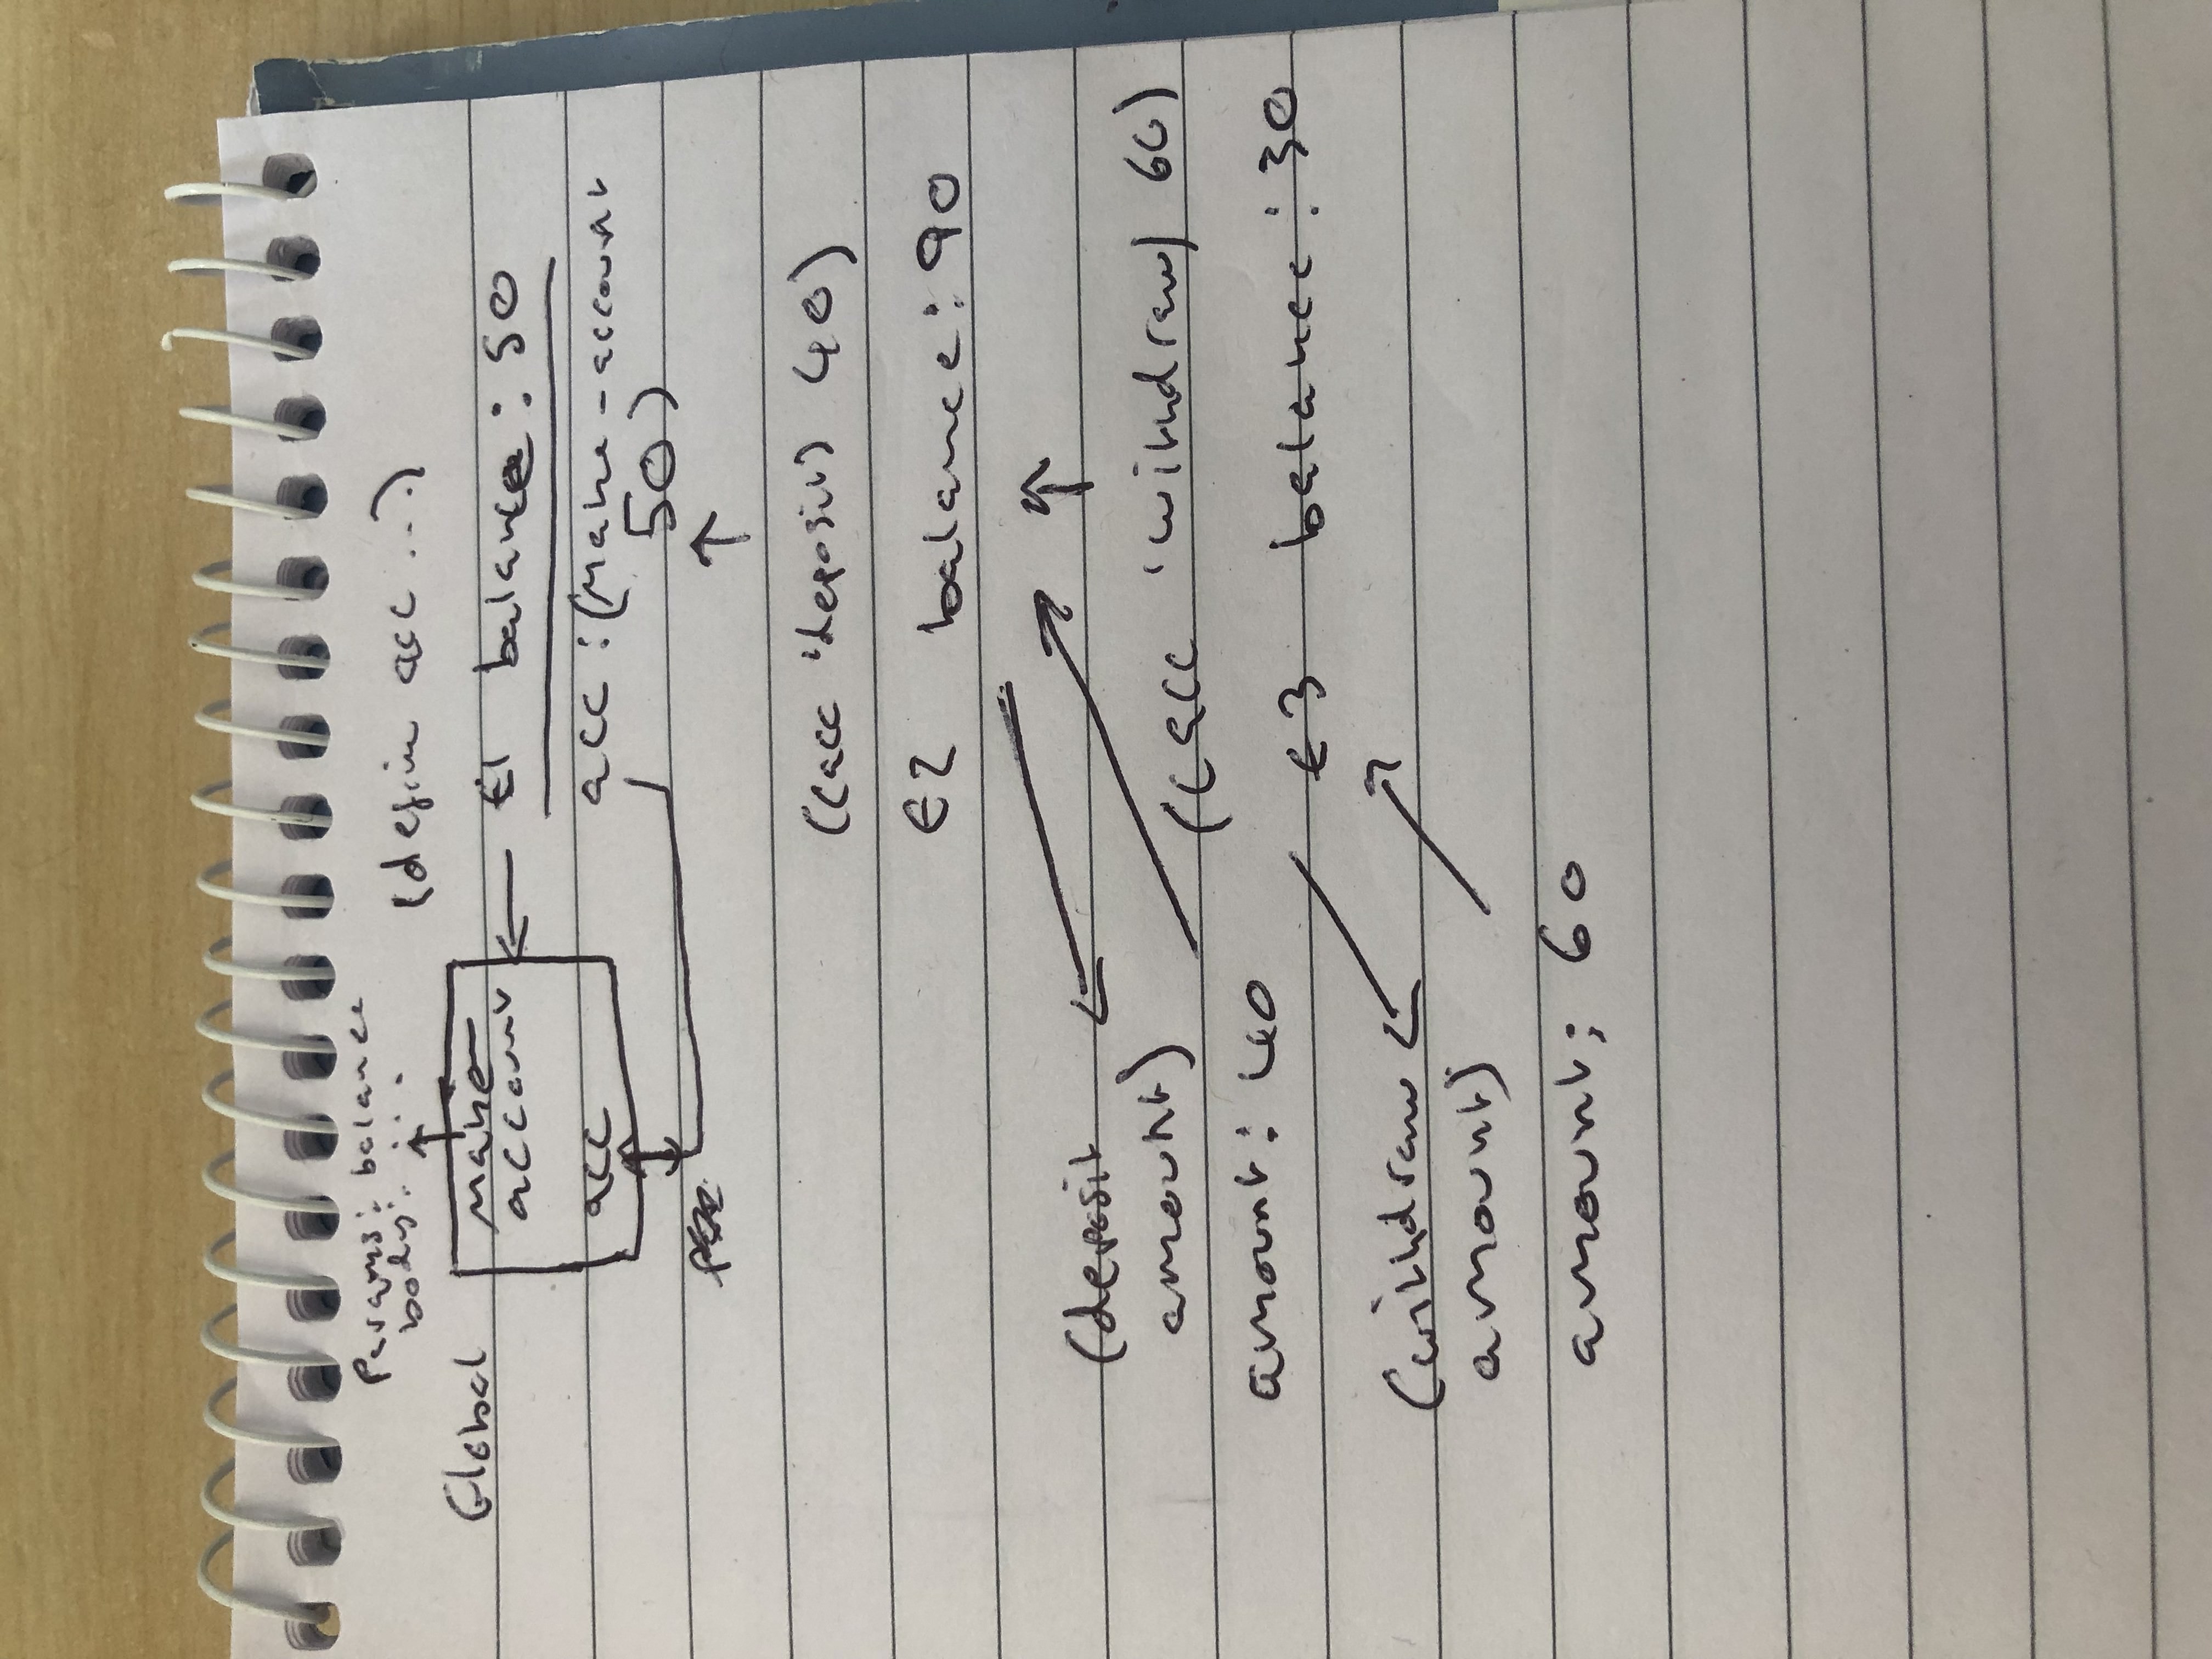 Params: balance
body: ...
(define acc ...)
Global
make
account
E1 balance: 50
acc
acc: (make-account
50)
((acc 'deposit) 40)
E2 balance: 90
(deposit
amount)
((acc 'withdraw) 60)
amount: 40
E3 balance: 30
(withdraw
amount)
amount: 60